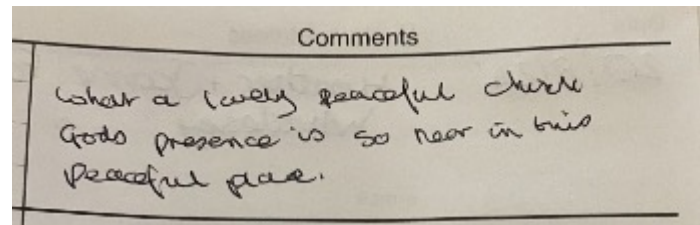 Comments
What a lovely peaceful church
Gods presence is so near in this
Peaceful place.